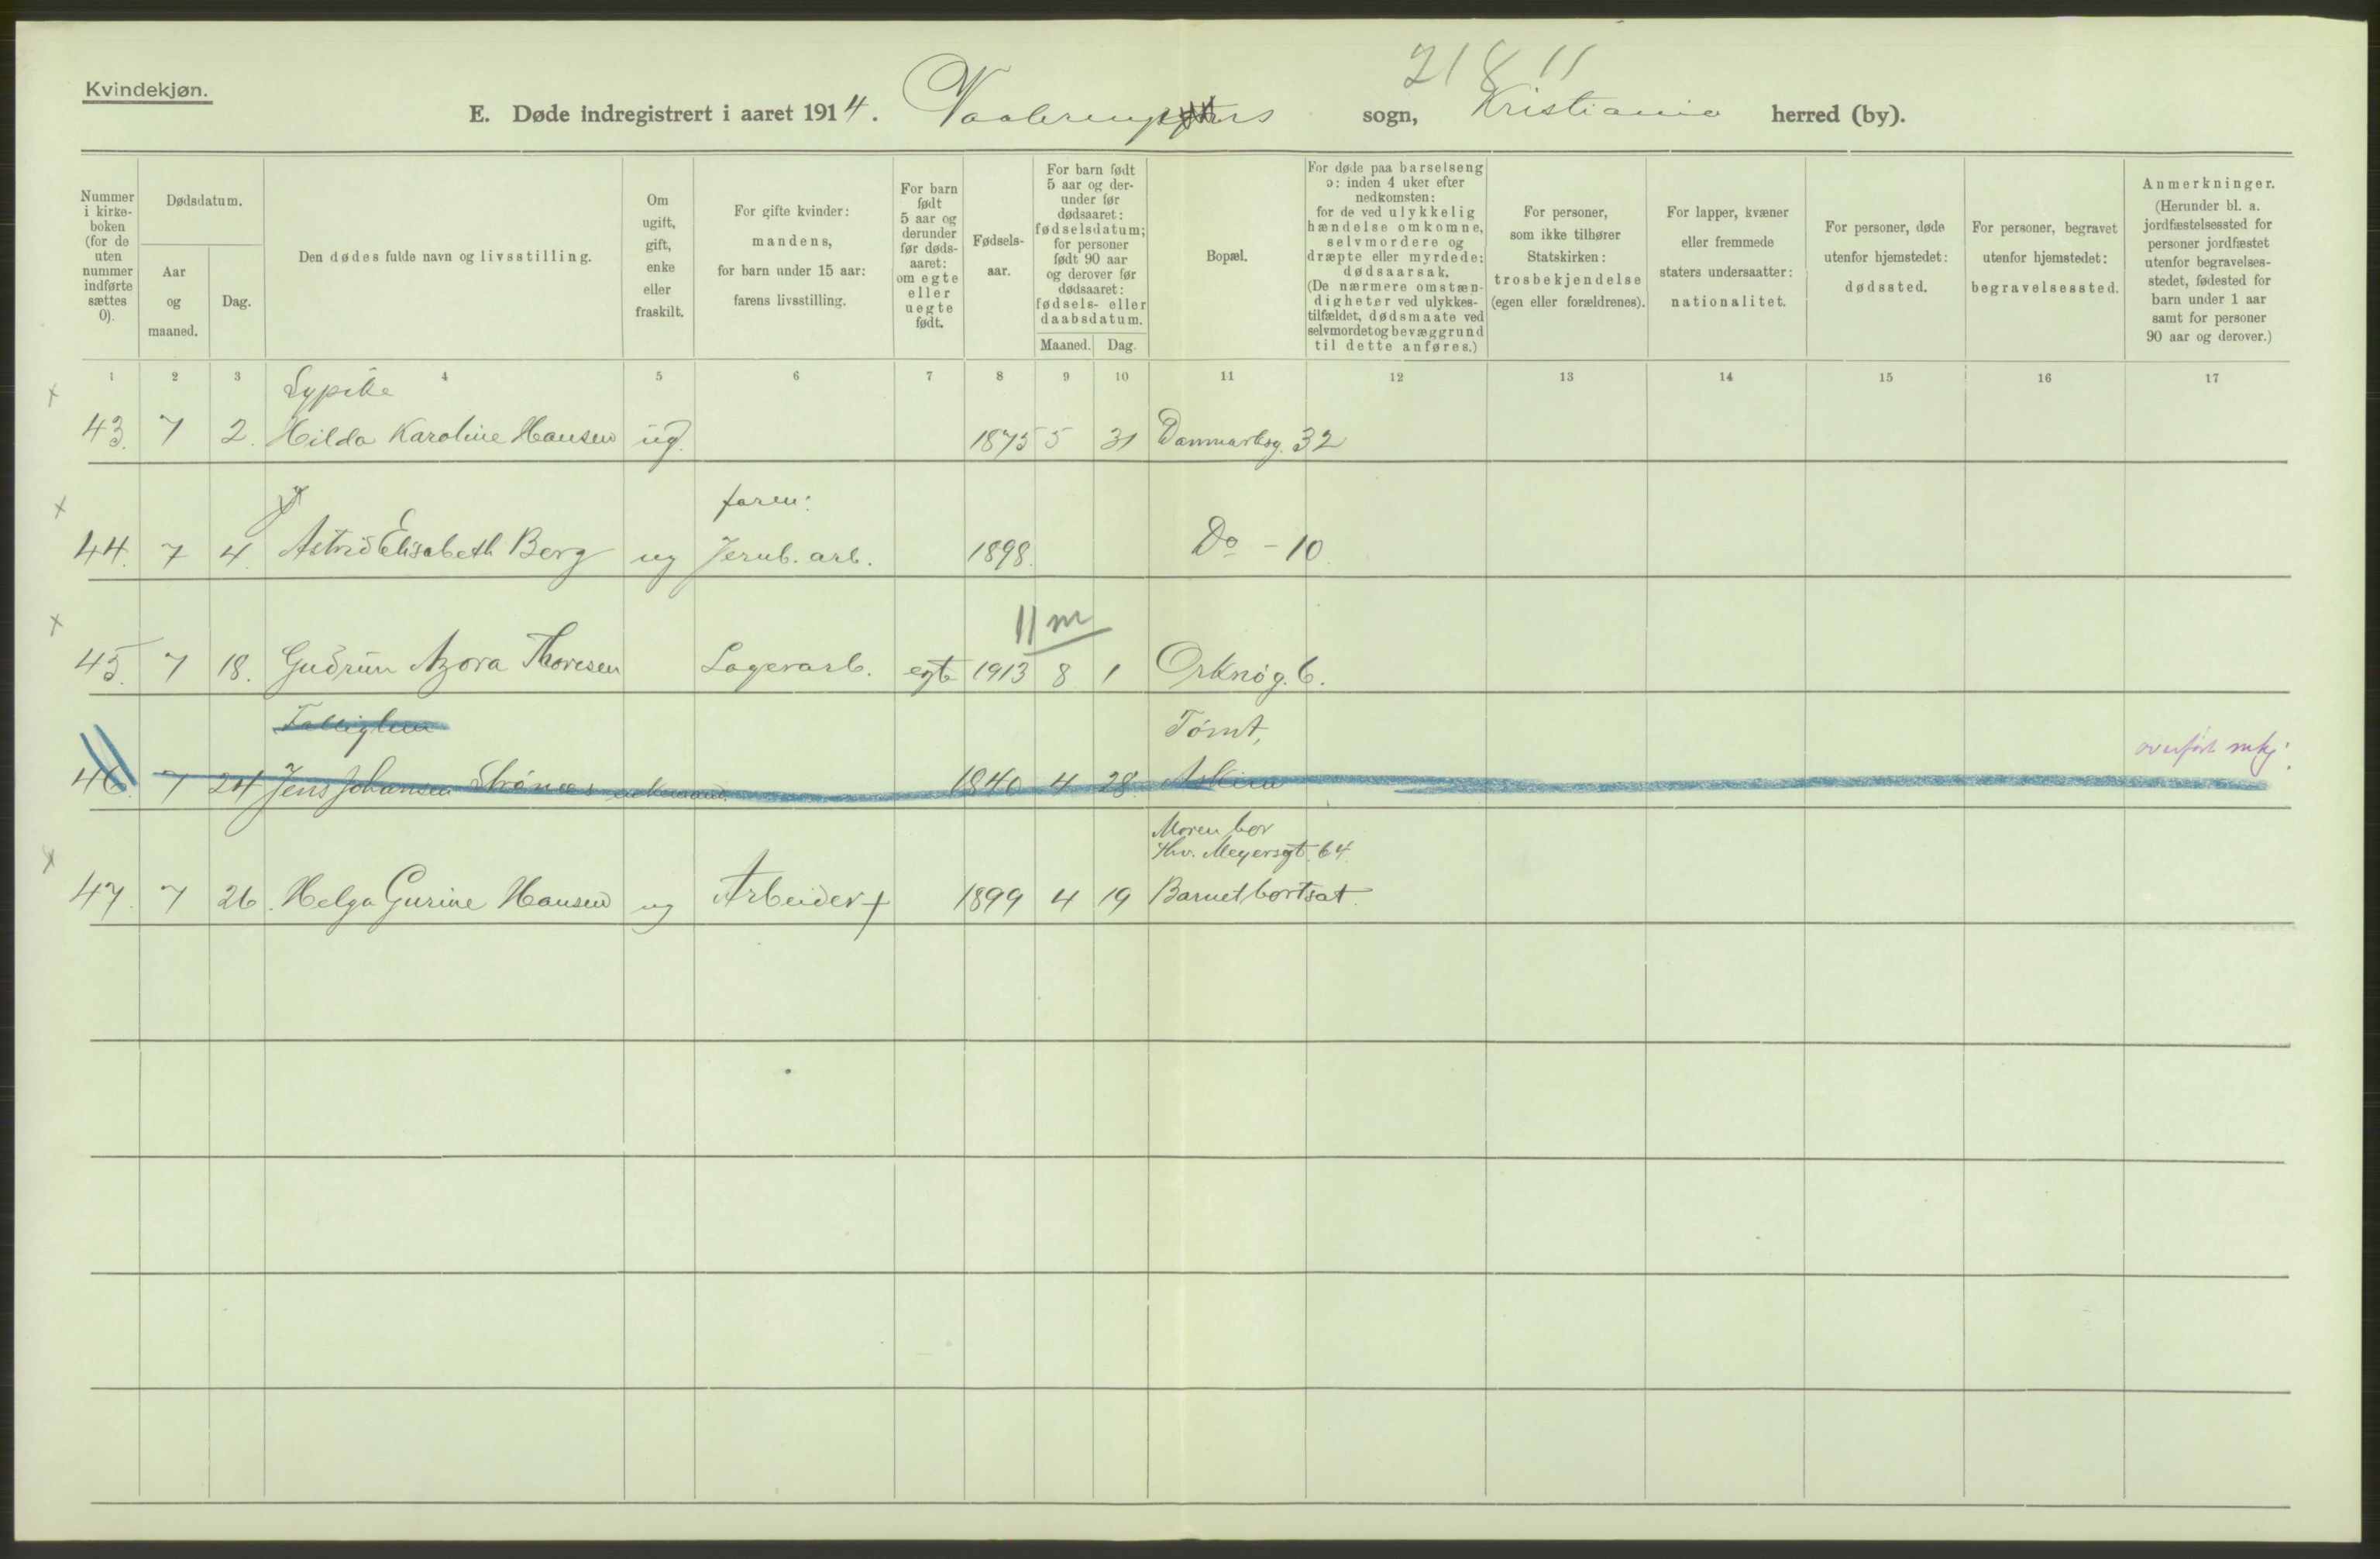 218 11
Kvindekjøn.
E. Døde indregistrert i aaret 1914. sogn, Kristiania herred (by).
Nummer i kirke-boken (for de uten nummer indførte sættes 0).
Dødsdatum.
Aar og maaned.
Dag.
Den dødes fulde navn og livsstilling.
Om ugift, gift, enke eller fraskilt.
For gifte kvinder: mandens, for barn under 15 aar: farens livsstilling.
For barn født 5 aar og derunder før døds-aaret: om egte eller uegte født.
Fødsels-aar.
For barn født 5 aar og der-under før dødsaaret: fødselsdatum; for personer født 90 aar og derover før dødsaaret: fødsels- eller daabsdatum.
Maaned. Dag.
Bopæl.
For døde paa barselseng ɔ: inden 4 uker efter nedkomsten: for de ved ulykkelig hændelse omkomne, selvmordere og dræpte eller myrdede: dødsaarsak. (De nærmere omstæn-digheter ved ulykkes-tilfældet, dødsmaate ved selvmordet og bevæggrund til dette anføres.)
For personer, som ikke tilhører Statskirken: trosbekjendelse (egen eller forældrenes).
For lapper, kvæner eller fremmede staters undersaatter: nationalitet.
For personer, døde utenfor hjemstedet: dødssted.
For personer, begravet utenfor hjemstedet: begravelsessted.
Anmerkninger. (Herunder bl. a. jordfæstelsessted for personer jordfæstet utenfor begravelses-stedet, fødested for barn under 1 aar samt for personer 90 aar og derover.)
1 2 3 4 5 6 7 8 9 10 11 12 13 14 15 16 17
Sypike
43. 7 2. Hilda Karoline Hansen ug. 1875 5 31 Danmarksg. 32
faren:
44. 7 4. Astrid Elisabeth Berg ug Jernb. arb. 1898. Do - 10
11 m
45. 7 18. Gudrun Azora Thoresen Lagerarb. egte 1913 8 1 Orknøg. 6.
Fattiglem Tømt, overført mkj.
46. 7 24 Jens Johansen Strønæs enkemand. 1840 4 28. Askim
Moren bor
Thv. Meyersgt. 64.
47. 7 26. Helga Gurine Hansen ug Arbeider + 1899 4 19 Barnet bortsat.